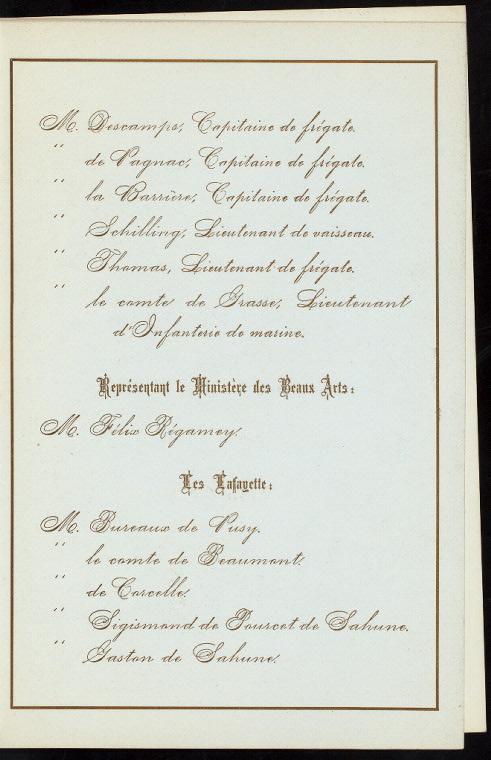 M. Descamps, Capitaine de frégate.
" de Pagnac, Capitaine de frégate.
" la Barrière, Capitaine de frégate.
" Schilling, Lieutenant de vaisseau.
" Thomas, Lieutenant de frégate.
" le comte de Grasse, Lieutenant
d'Infanterie de marine.
Représentant le Ministère des Beaux Arts:
M. Félix Régamey.
Les Lafayette:
M. Bureaux de Pusy.
" le comte de Beaumont.
" de Corcelle.
" Sigismond de Pourcet de Sahune.
" Gaston de Sahune.